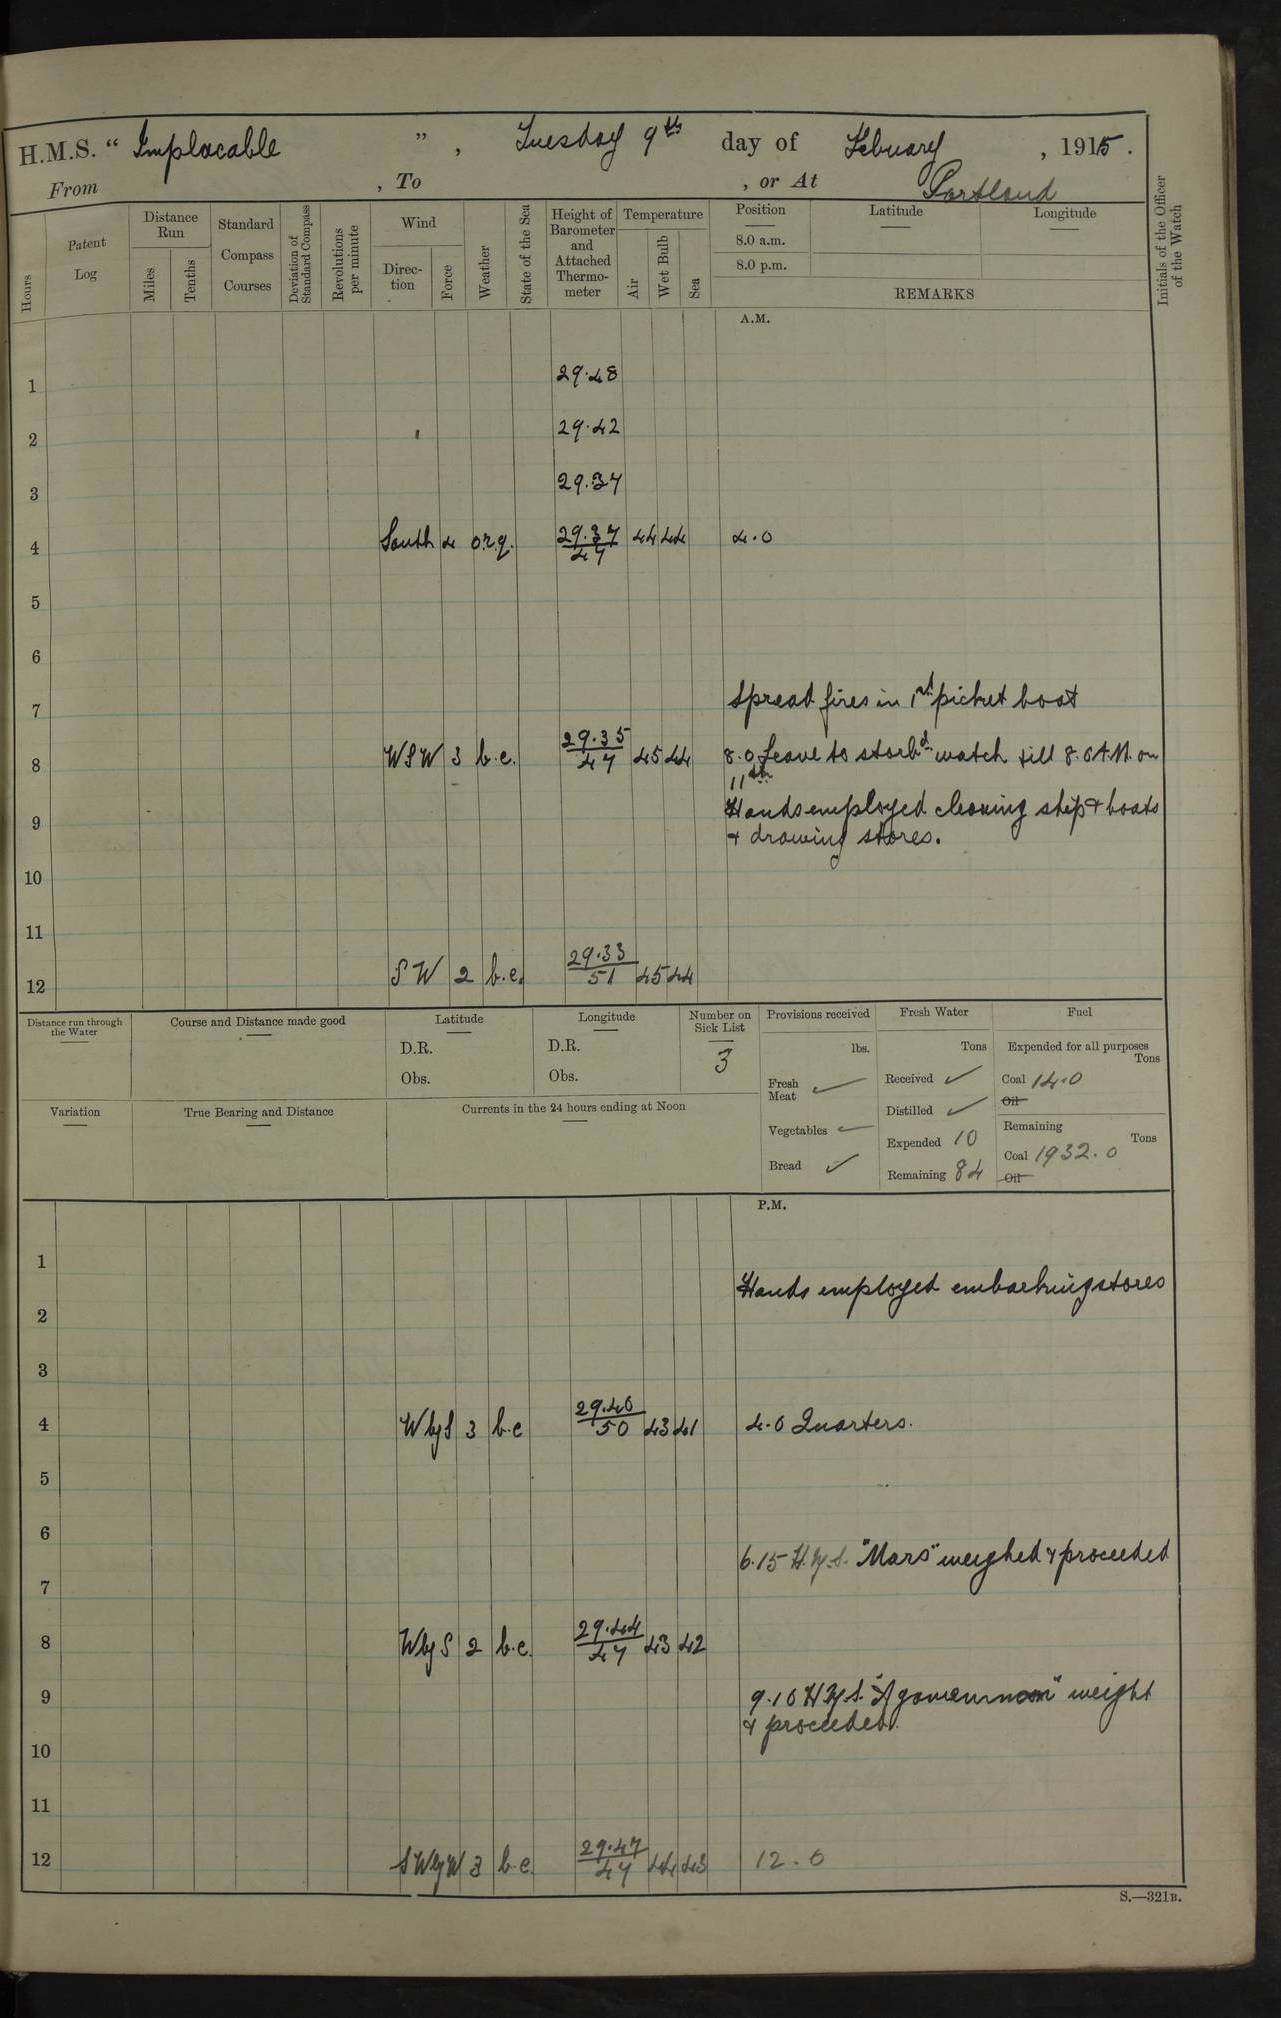 H.M.S. “ Implacable ” , Tuesday 9th day of Febuary , 1915 .
From , To , or At Portland
Hours
Patent Log
Distance Run
Miles
Tenths
Standard Compass Courses
Deviation of Standard Compass
Revolutions per minute
Wind
Direction
Force
Weather
State of the Sea
Height of Barometer and Attached Thermometer
Temperature
Air
Wet Bulb
Sea
Position
8.0 a.m.
8.0 p.m.
Latitude
Longitude
REMARKS
Initials of the Officer of the Watch
A.M.
1 29.48
2 29.42
3 29.37
4 South 4 o.r.q. 29.37 / 47 44 44 4.0
5
6
Spread fires in 1st picket boat
7
8 WSW 3 b.c. 29.35 / 47 45 44 8.0 Leave to starbd watch till 8.0 A.M. on
11th
Hands employed cleaning ship & boats
9
& drawing stores.
10
11
12 SW 2 b.c. 29.33 / 51 45 44
Distance run through the Water
Course and Distance made good
Latitude
D.R.
Obs.
Longitude
D.R.
Obs.
Number on Sick List
3
Provisions received
lbs.
Fresh Meat ✓
Vegetables ✓
Bread ✓
Fresh Water
Tons
Received ✓
Distilled ✓
Expended 10
Remaining 84
Fuel
Expended for all purposes
Tons
Coal 14.0
Oil
Remaining
Tons
Coal 1932.0
Oil
Variation
True Bearing and Distance
Currents in the 24 hours ending at Noon
P.M.
1
Hands employed embarking stores
2
3
4 WbyS 3 b.c 29.40 / 50 43 41 4.0 Quarters.
5
6
6.15 H.M.S. "Mars" weighed & proceeded
7
8 WbyS 2 b.c. 29.44 / 47 43 42
9 9.10 H.M.S. "Agamemnon" weight
& proceeded.
10
11
12 SWbyW 3 b.c. 29.47 / 47 44 43 12.0
S.—321B.